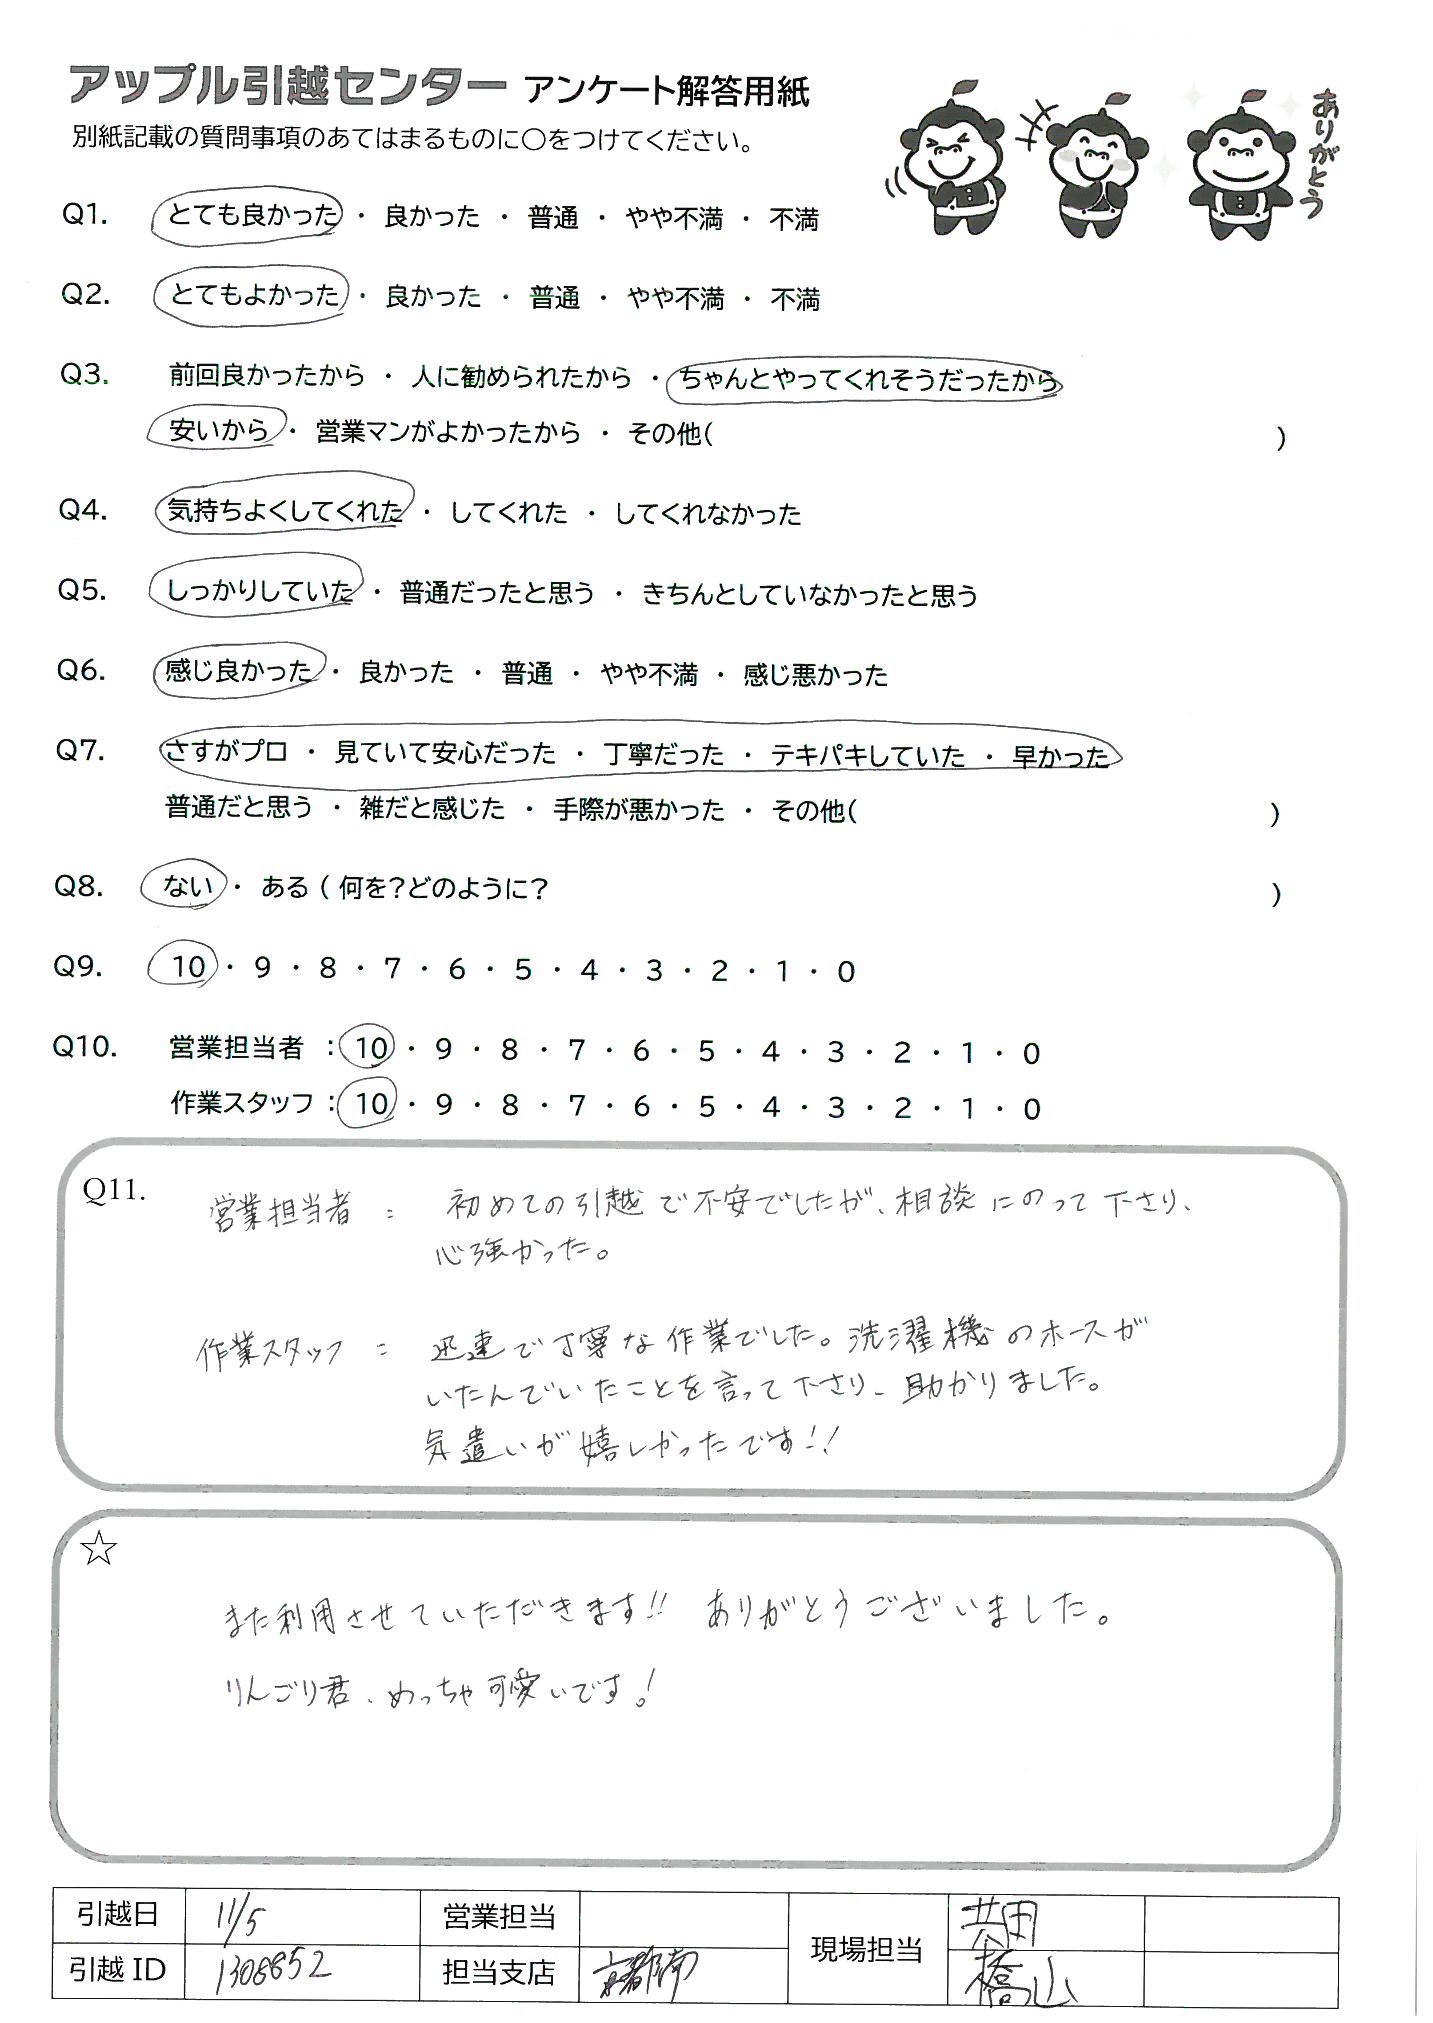 アップル引越センター アンケート解答用紙
別紙記載の質問事項のあてはまるものに〇をつけてください。
ありがとう
Q1. とても良かった ・ 良かった ・ 普通 ・ やや不満 ・ 不満
Q2. とてもよかった ・ 良かった ・ 普通 ・ やや不満 ・ 不満
Q3. 前回良かったから ・ 人に勧められたから ・ ちゃんとやってくれそうだったから
安いから ・ 営業マンがよかったから ・ その他( )
Q4. 気持ちよくしてくれた ・ してくれた ・ してくれなかった
Q5. しっかりしていた ・ 普通だったと思う ・ きちんとしていなかったと思う
Q6. 感じ良かった ・ 良かった ・ 普通 ・ やや不満 ・ 感じ悪かった
Q7. さすがプロ ・ 見ていて安心だった ・ 丁寧だった ・ テキパキしていた ・ 早かった
普通だと思う ・ 雑だと感じた ・ 手際が悪かった ・ その他( )
Q8. ない ・ ある ( 何を?どのように? )
Q9. 10 ・ 9 ・ 8 ・ 7 ・ 6 ・ 5 ・ 4 ・ 3 ・ 2 ・ 1 ・ 0
Q10. 営業担当者 : 10 ・ 9 ・ 8 ・ 7 ・ 6 ・ 5 ・ 4 ・ 3 ・ 2 ・ 1 ・ 0
作業スタッフ : 10 ・ 9 ・ 8 ・ 7 ・ 6 ・ 5 ・ 4 ・ 3 ・ 2 ・ 1 ・ 0
Q11. 営業担当者 : 初めての引越で不安でしたが、相談にのって下さり、
心強かった。
作業スタッフ : 迅速で丁寧な作業でした。洗濯機のホースが
いたんでいたことを言って下さり、助かりました。
気遣いが嬉しかったです!!
☆
また利用させていただきます!! ありがとうございました。
りんごり君、めっちゃ可愛いです。!
引越日 11/5 営業担当 現場担当 共田
引越 ID 1308852 担当支店 京都南 橋山